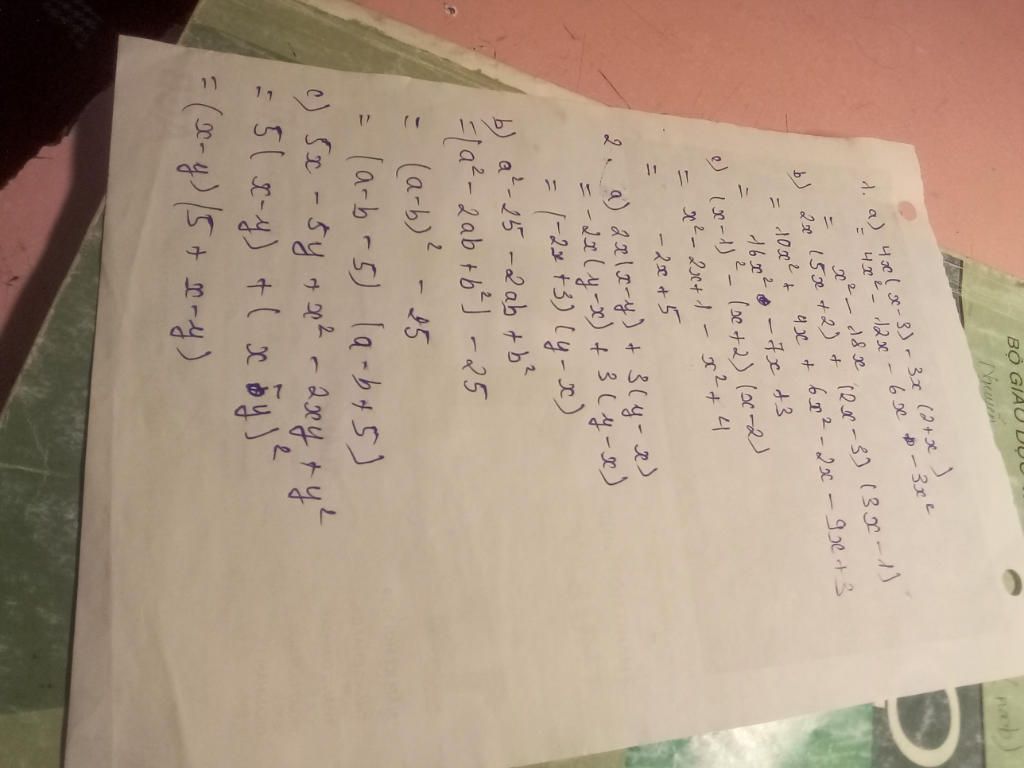 1. a) 4x(x-3) - 3x(2+x)
= 4x² - 12x - 6x - 3x²
= x² - 18x
b) 2x(5x+2) + (2x-3)(3x-1)
= 10x² + 4x + 6x² - 2x - 9x + 3
= 16x² - 7x + 3
c) (x-1)² - (x+2)(x-2)
= x² - 2x + 1 - x² + 4
= -2x + 5
2. a) 2x(x-y) + 3(y-x)
= -2x(y-x) + 3(y-x)
= (-2x+3)(y-x)
b) a² - 25 - 2ab + b²
= (a² - 2ab + b²) - 25
= (a-b)² - 25
= (a-b-5) (a-b+5)
c) 5x - 5y + x² - 2xy + y²
= 5(x-y) + (x-y)²
= (x-y)(5+x-y)
BỘ GIÁO DỤC